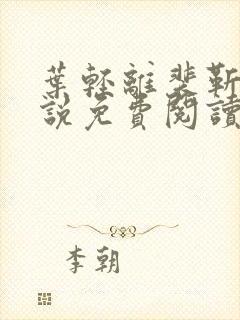 葉輕離裴靳
說免費閱讀
李朝